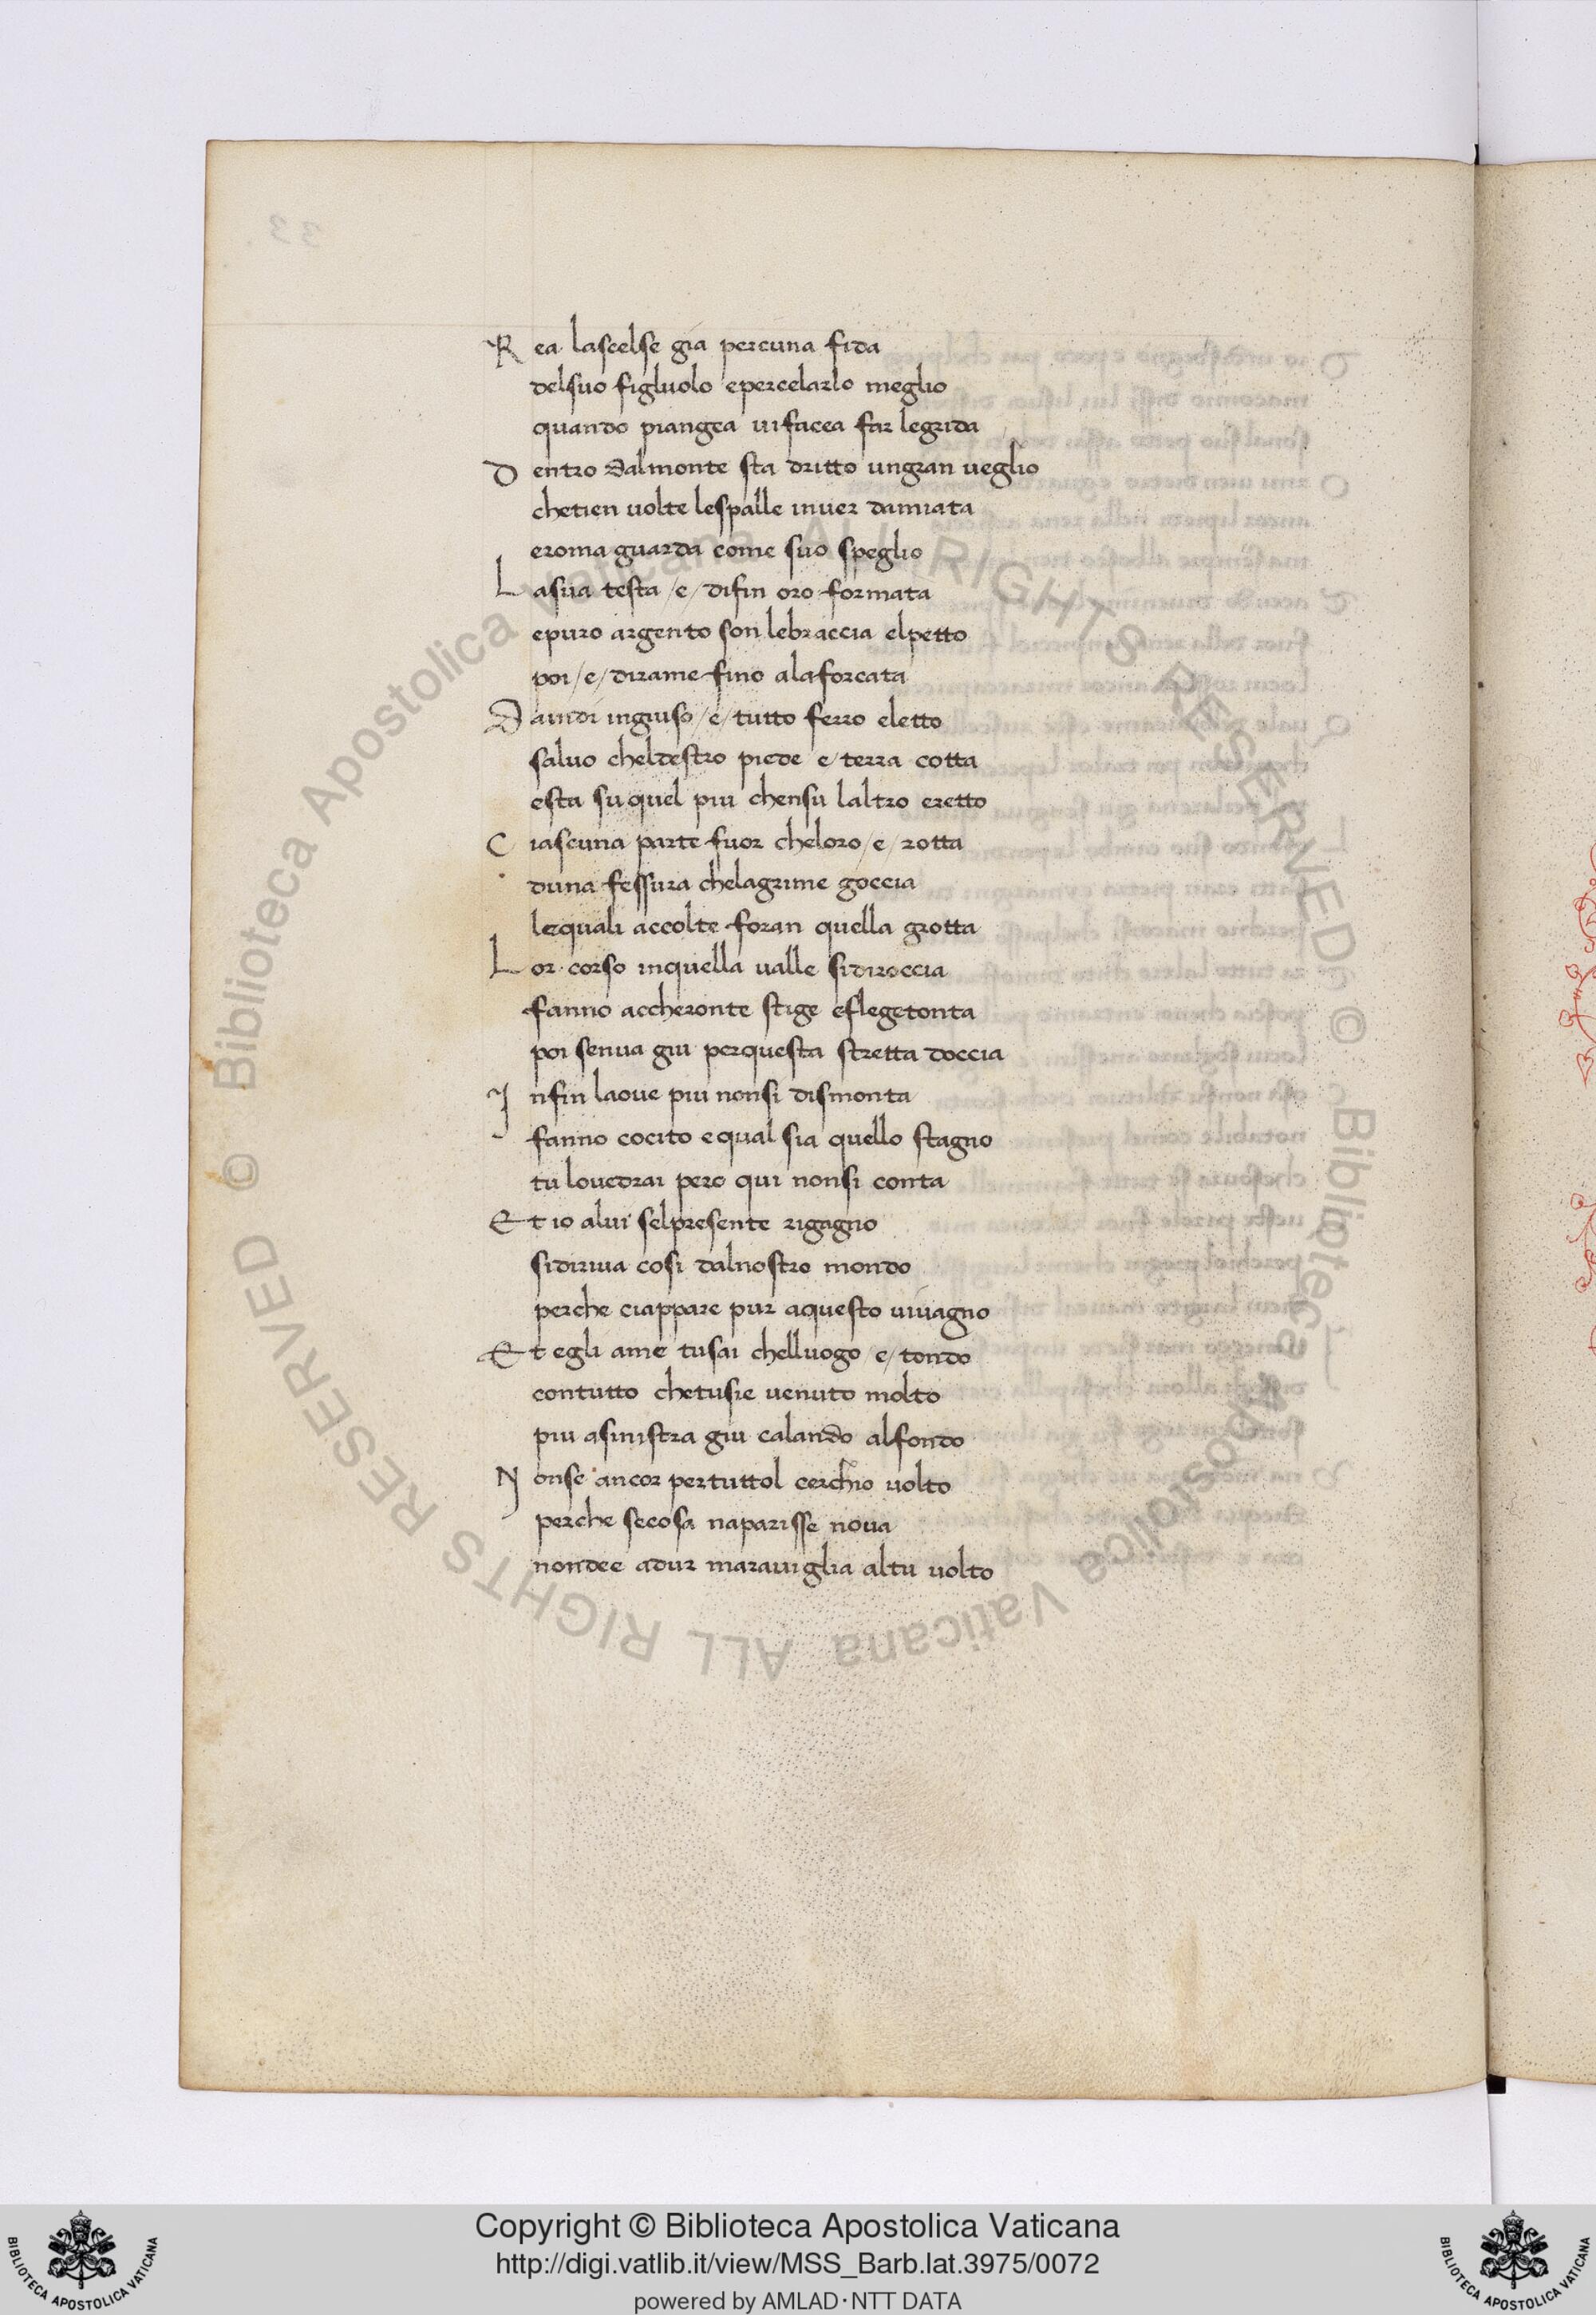 Rea lascelse gia percuna fida
delsuo figluolo epercelarlo meglio
quando piangea uifacea far legrida
Dentro dalmonte sta dritto ungran ueglio
chetien uolte lespalle inuer damiata
eroma guarda come suo speglio
Lasua testa /e/ difin oro formata
epuro argento son lebraccia elpetto
poi /e/ dirame fino alaforcata
Daindi ingiuso /e/ tutto ferro eletto
saluo cheldestro piede e/ terra cotta
esta suquel piu chensu laltro eretto
Ciascuna parte fuor cheloro /e/ rotta
duna fessura chelagrime goccia
lequali accolte foran quella grotta
Lor corso inquella ualle sidiroccia
fanno accheronte stige eflegetonta
poi senua giu perquesta stretta doccia
Infin laoue piu nonsi dismonta
fanno cocito equal sia quello stagno
tu louedrai pero qui nonsi conta
Et io alui selpresente rigagno
sidiriua cosi dalnostro mondo
perche ciappare pur aquesto uiuagno
Et egli ame tusai chelluogo /e/ tondo
contutto chetusie uenuto molto
piu asinistra giu calando alfondo
Nonse ancor pertuttol cerchio uolto
perche secosa naparisse noua
nondee adur marauiglia altu uolto
© Biblioteca Apostolica Vaticana ALL RIGHTS RESERVED © Biblioteca Apostolica Vaticana ALL RIGHTS RESERVED
Copyright © Biblioteca Apostolica Vaticana
http://digi.vatlib.it/view/MSS_Barb.lat.3975/0072
powered by AMLAD·NTT DATA
BIBLIOTECA APOSTOLICA VATICANA
BIBLIOTECA APOSTOLICA VATICANA